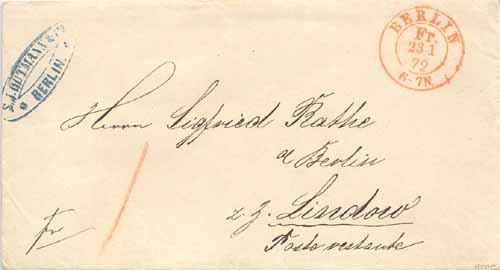 S. J. GUTMANN
BERLIN
BERLIN
Fr.
23 1
72
6-7N.
Herrn Siegfried Rathe
a Berlin
z. Z. Lindow
Poste restante
fr